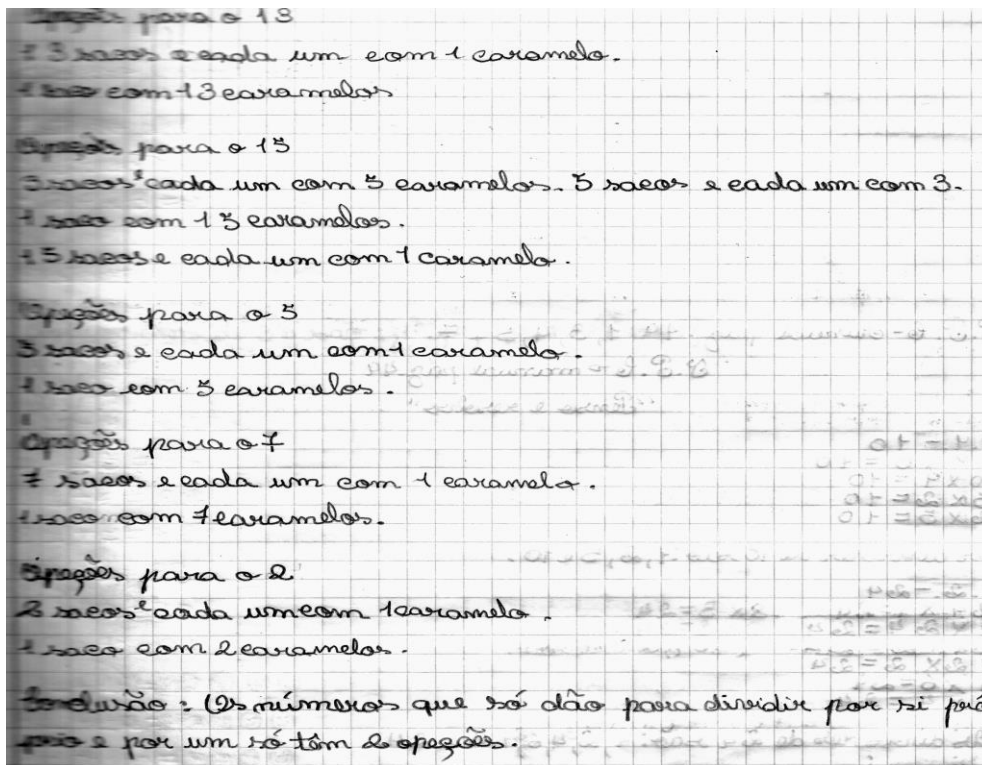 Opeções para o 13
13 sacos e cada um com 1 caramelo.
1 saco com 13 caramelos
Opeções para o 15
3 sacos e cada um com 5 caramelos. 5 sacos e cada um com 3.
1 saco com 15 caramelos.
15 sacos e cada um com 1 caramelo.
Opeções para o 5
5 sacos e cada um com 1 caramelo.
1 saco com 5 caramelos.
Opeções para o 7
7 sacos e cada um com 1 caramelo.
1 saco com 7 caramelos.
Opeções para o 2
2 sacos e cada um com 1 caramelo.
1 saco com 2 caramelos.
Conclusão: Os números que só dão para dividir por si pró
prio e por um só têm 2 opeções.